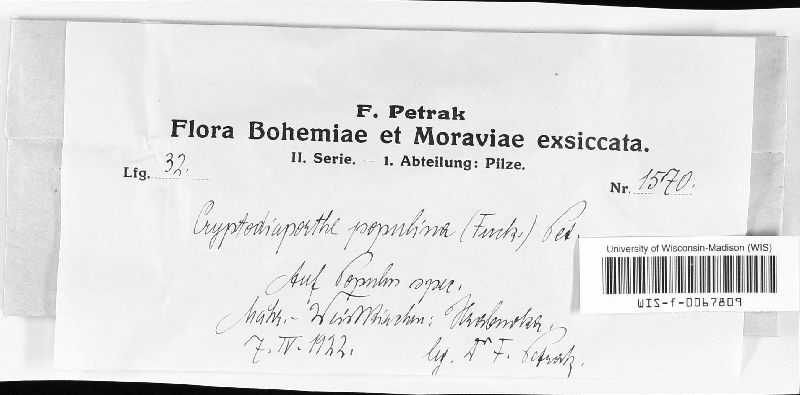 F. Petrak
Flora Bohemiae et Moraviae exsiccata.
II. Serie. — 1. Abteilung: Pilze.
Lfg. 32.
Nr. 1570.
Cryptodiaporthe populina (Fuck.) Pet.
Auf Populus spec.
Mähr.-Weisskirchen: Hrabuvka,
7. IV. 1922. lg. Dr F. Petrak.
University of Wisconsin-Madison (WIS)
WIS-f-0067809